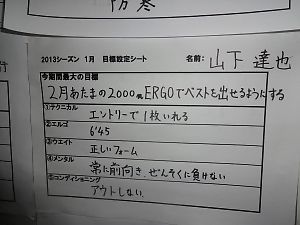 防寒
2013シーズン 1月 目標設定シート 名前: 山下 達也
今期間最大の目標
2月あたまの2000m ERGOでベストを出せるようにする
①テクニカル
エントリーで1枚いれる
②エルゴ
6'45
③ウエイト
正しいフォーム
④メンタル
常に前向き、ぜんそくに負けない
⑤コンディショニング
アウトしない